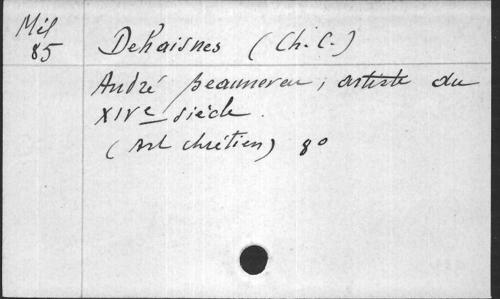 Mél
85
Dehaisnes (Ch. C.)
André Beauneveu, artiste du
XIVe siècle.
(Art chrétien) 8o